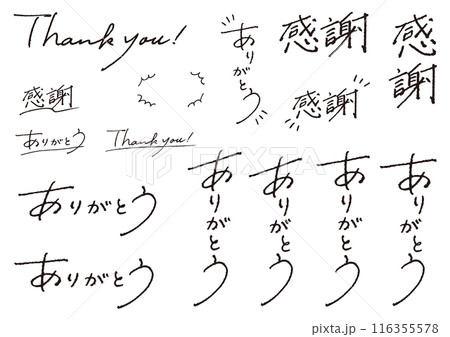 Thank you!
ありがとう
感謝
感謝
感謝
感謝
ありがとう
Thank you!
ありがとう
ありがとう
ありがとう
ありがとう
ありがとう
ありがとう
PIXTA
pixta.jp - 116355578